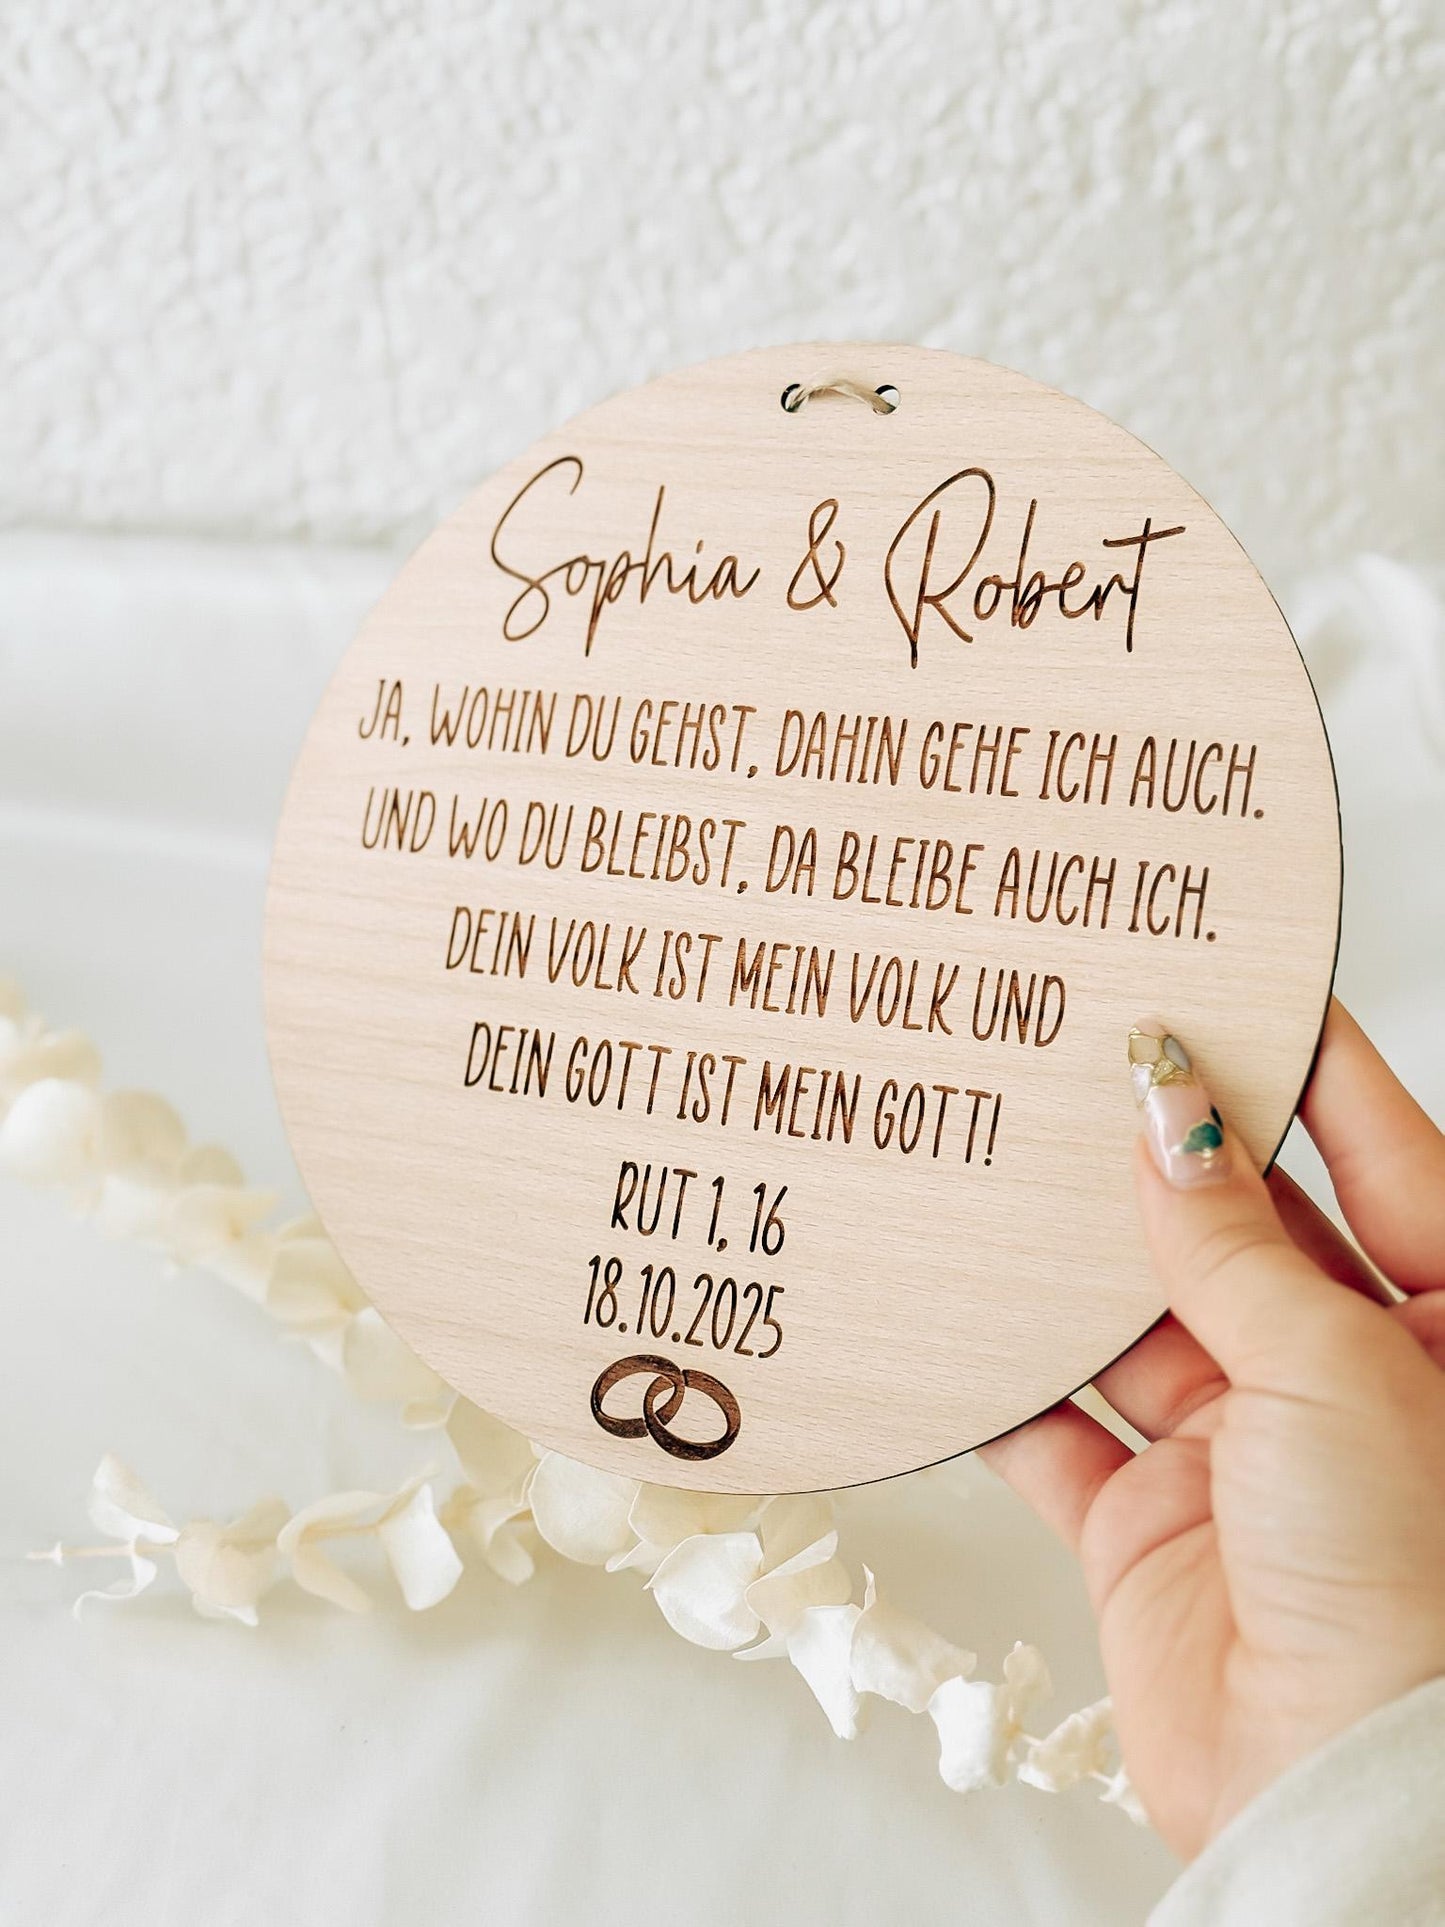 Sophia & Robert
JA, WOHIN DU GEHST, DAHIN GEHE ICH AUCH.
UND WO DU BLEIBST, DA BLEIBE AUCH ICH.
DEIN VOLK IST MEIN VOLK UND
DEIN GOTT IST MEIN GOTT!
RUT 1, 16
18.10.2025